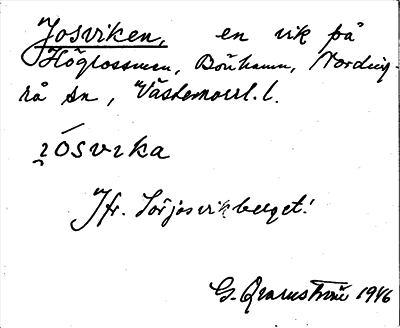 Josviken, en vik på
Höglosmen, Bönhamn, Nording-
rå sn, Västernorrl. l.
jósvika
Jfr. Sörjosvikberget!
G. Qvarnström 1946